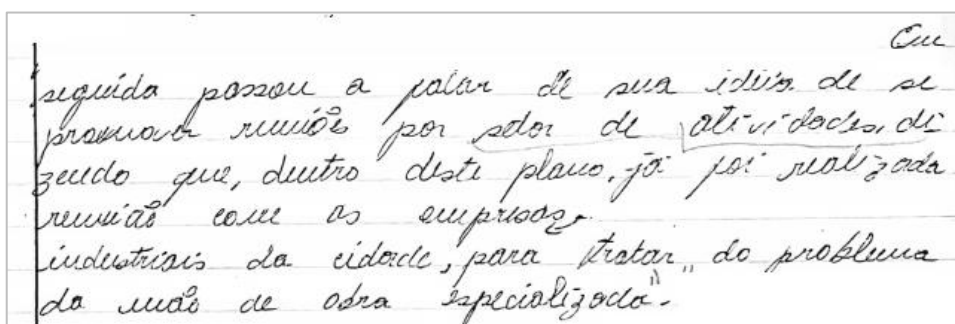 Em
seguida passou a falar de sua idéia de se
promover reuniões por setor de atividades, di
zendo que, dentro deste plano, já foi realizada
reunião com as empresas
industriais da cidade, para tratar "do problema
da mão de obra especializada".